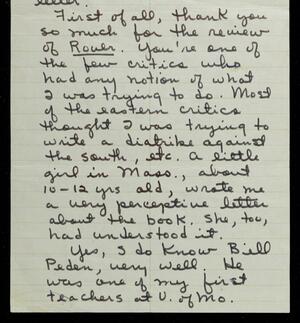 letter.
First of all, thank you
so much for the review
of Rover. You're one of
the few critics who
had any notion of what
I was trying to do. Most
of the eastern critics
thought I was trying to
write a diatribe against
the south, etc. A little
girl in Mass., about
10-12 yrs old, wrote me
a very perceptive letter
about the book. She, too,
had understood it.
Yes, I do know Bill
Peden, very well. He
was one of my first
teachers at U. of Mo.